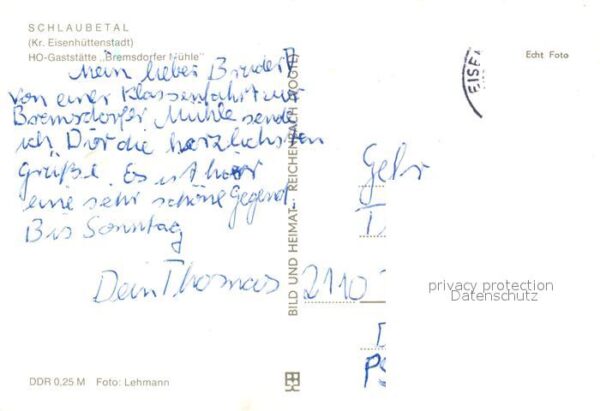 SCHLAUBETAL
(Kr. Eisenhüttenstadt)
HO-Gaststätte „Bremsdorfer Mühle"
Mein lieber Bruder!
Von einer Klassenfahrt zur
Bremsdorfer Mühle sende
ich Dir die herzlichsten
Grüße. Es ist hier
eine sehr schöne Gegend.
Bis Sonntag
Dein Thomas
DDR 0,25 M Foto: Lehmann
BILD UND HEIMAT · REICHENBACH (VOGTL)
EISEN
Echt Foto
Gebr
2110
privacy protection
Datenschutz